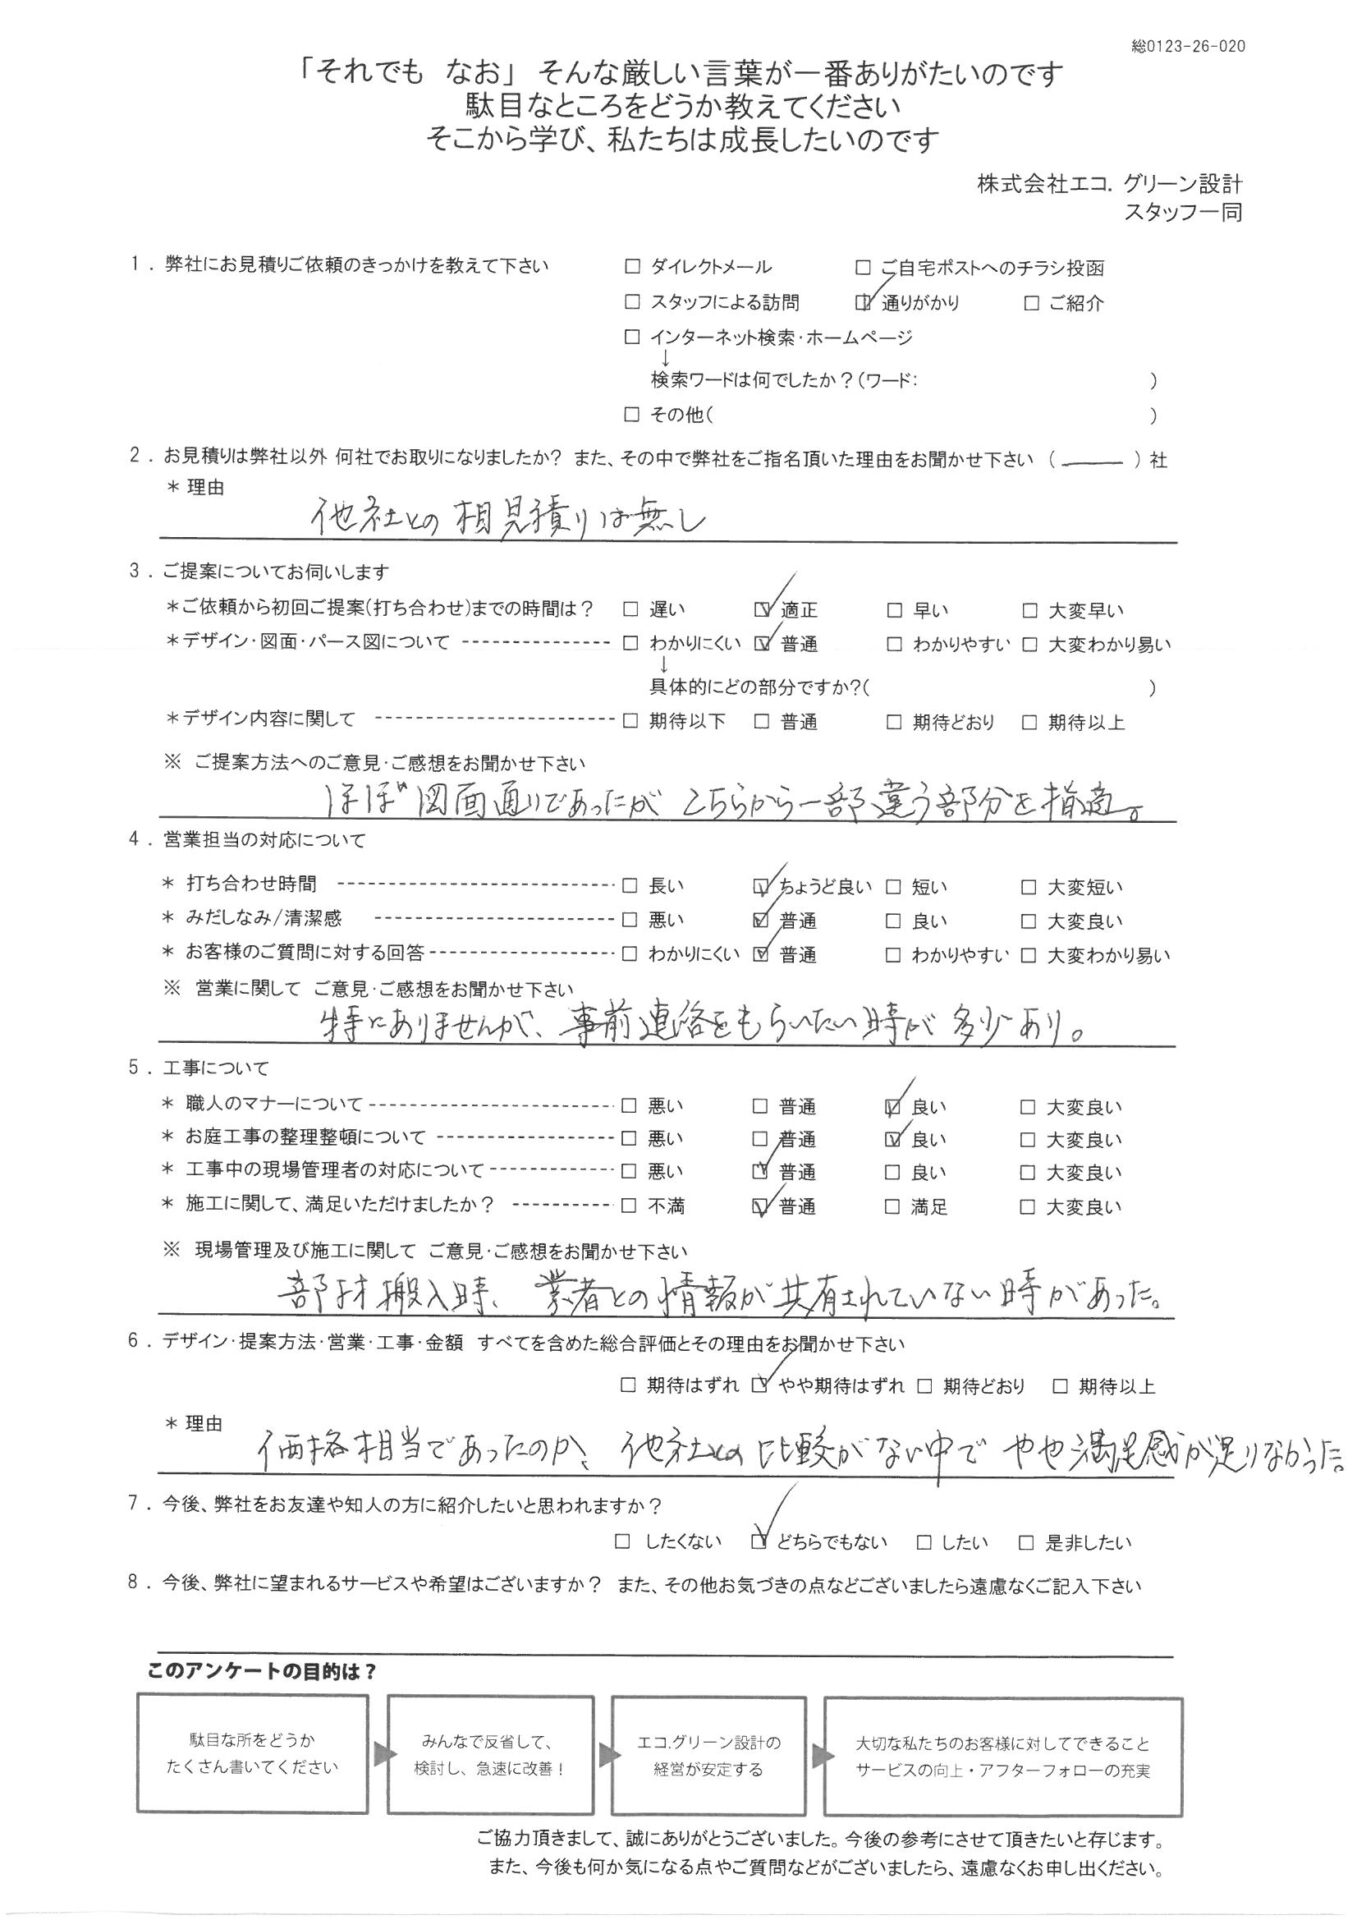 総0123-26-020
「それでも なお」 そんな厳しい言葉が一番ありがたいのです
駄目なところをどうか教えてください
そこから学び、私たちは成長したいのです
株式会社エコ．グリーン設計
スタッフ一同
1．弊社にお見積りご依頼のきっかけを教えて下さい □ ダイレクトメール □ ご自宅ポストへのチラシ投函
□ スタッフによる訪問 ☑ 通りがかり □ ご紹介
□ インターネット検索・ホームページ
↓
検索ワードは何でしたか？（ワード： ）
□ その他（ ）
2．お見積りは弊社以外 何社でお取りになりましたか？ また、その中で弊社をご指名頂いた理由をお聞かせ下さい （ ― ）社
＊ 理由
他社との相見積りは無し
3．ご提案についてお伺いします
＊ご依頼から初回ご提案（打ち合わせ）までの時間は？ □ 遅い ☑ 適正 □ 早い □ 大変早い
＊デザイン・図面・パース図について --------------- □ わかりにくい ☑ 普通 □ わかりやすい □ 大変わかり易い
↓
具体的にどの部分ですか？（ ）
＊デザイン内容に関して ------------------------ □ 期待以下 □ 普通 □ 期待どおり □ 期待以上
※ ご提案方法へのご意見・ご感想をお聞かせ下さい
ほぼ図面通りであったが こちらから一部違う部分を指摘。
4．営業担当の対応について
＊ 打ち合わせ時間 ---------------------------- □ 長い ☑ ちょうど良い □ 短い □ 大変短い
＊ みだしなみ/清潔感 ------------------------ □ 悪い ☑ 普通 □ 良い □ 大変良い
＊ お客様のご質問に対する回答------------------- □ わかりにくい ☑ 普通 □ わかりやすい □ 大変わかり易い
※ 営業に関して ご意見・ご感想をお聞かせ下さい
特にありませんが、事前連絡をもらいたい時が多少あり。
5．工事について
＊ 職人のマナーについて------------------------- □ 悪い □ 普通 ☑ 良い □ 大変良い
＊ お庭工事の整理整頓について ------------------ □ 悪い □ 普通 ☑ 良い □ 大変良い
＊ 工事中の現場管理者の対応について------------- □ 悪い ☑ 普通 □ 良い □ 大変良い
＊ 施工に関して、満足いただけましたか？ ---------- □ 不満 ☑ 普通 □ 満足 □ 大変良い
※ 現場管理及び施工に関して ご意見・ご感想をお聞かせ下さい
部材搬入時、業者との情報が共有されていない時があった。
6．デザイン・提案方法・営業・工事・金額 すべてを含めた総合評価とその理由をお聞かせ下さい
□ 期待はずれ ☑ やや期待はずれ □ 期待どおり □ 期待以上
＊ 理由
価格相当であったのか、他社との比較がない中で やや満足感が足りなかった。
7．今後、弊社をお友達や知人の方に紹介したいと思われますか？
□ したくない ☑ どちらでもない □ したい □ 是非したい
8．今後、弊社に望まれるサービスや希望はございますか？ また、その他お気づきの点などございましたら遠慮なくご記入下さい
このアンケートの目的は？
駄目な所をどうか
たくさん書いてください
みんなで反省して、
検討し、急速に改善！
エコ.グリーン設計の
経営が安定する
大切な私たちのお客様に対してできること
サービスの向上・アフターフォローの充実
ご協力頂きまして、誠にありがとうございました。今後の参考にさせて頂きたいと存じます。
また、今後も何か気になる点やご質問などがございましたら、遠慮なくお申し出ください。